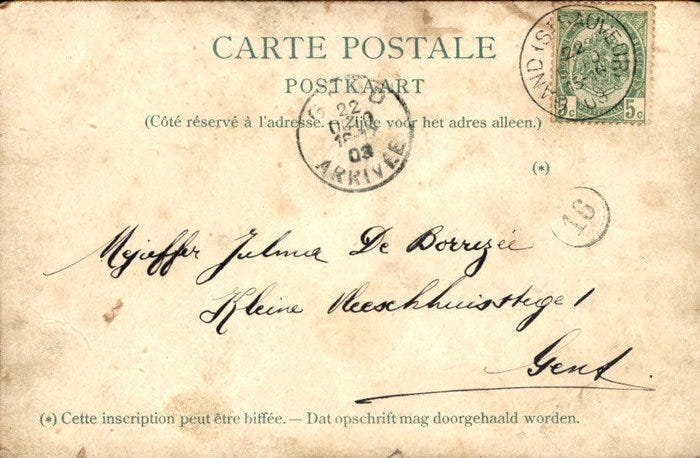 CARTE POSTALE
POSTKAART
(Côté réservé à l'adresse. Zijde voor het adres alleen.)
22
03
ARRIVÉE
5c 5c
(*)
16
Mejieffer Julma De Borrezée
Kleine Vleeschhuisstege 1
Gent
(*) Cette inscription peut être biffée. — Dat opschrift mag doorgehaald worden.